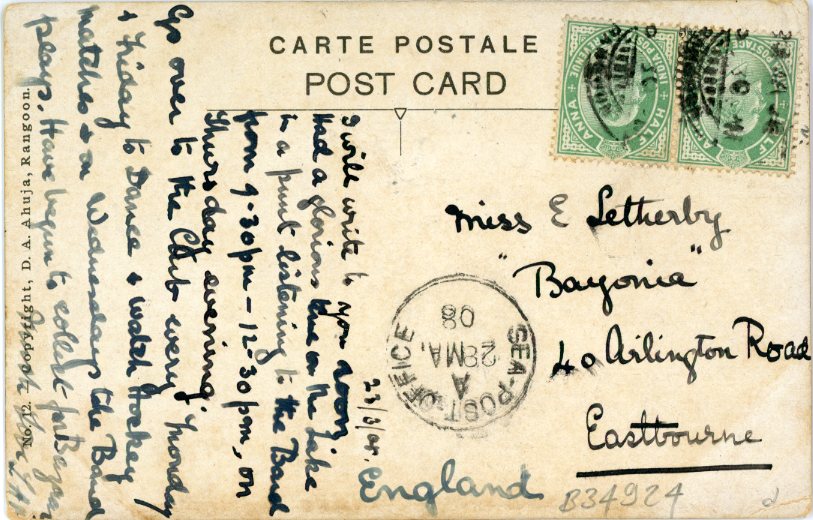 CARTE POSTALE
POST CARD
INDIA POSTAGE & REVENUE
HALF ANNA
INDIA POSTAGE & REVENUE
HALF ANNA
23/3/08.
I will write to you soon
Had a glorious time on the Lake
in a punt listening to the Band
from 9-30pm - 12-30pm, on
Thursday evening.
Go over to the Club every Monday
& Friday to Dance & watch Hockey
matches & on Wednesdays the Band
plays. Have begun to collect for
No. 12. Copyright, D. A. Ahuja, Rangoon.
Miss E Letherby
"Bayonia"
40 Arlington Road
Eastbourne
England
SEA-POST-OFFICE
A
28 MA.
08
B34924